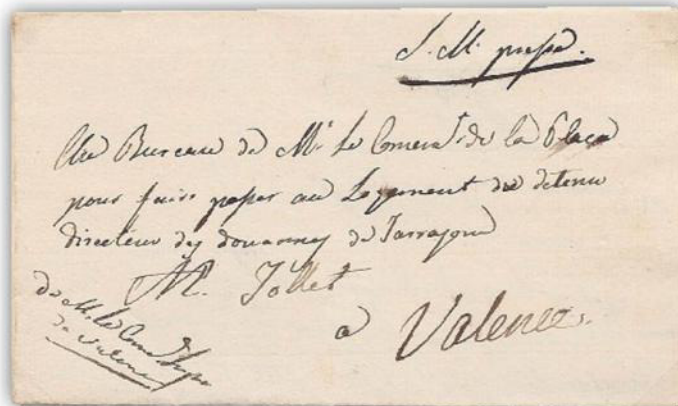 S. M. pressé.
Au Bureau de Mr Le Comm.t de la Place
pour faire passer au Logement du détenu
directeur des douannes de Tarragone
M. Jollet
à Valence.
de M. Le Com
de Valence